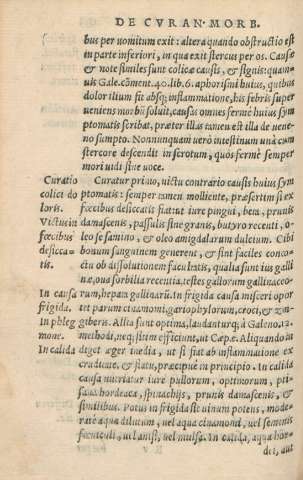 DE CVRAN. MORB.
bus per uomitum exit: altera quando obstructio est
in parte inferiori, in qua exit stercus per os. Causæ
& notæ similes sunt colicæ causis, & signis: quam-
uis Gale. cõment. 40. lib. 6. aphorismi huius, quibus
dolor ilium sit absq; inflammatione, his febris super
ueniens morbũ soluit, causas omnes fermè huius sym
ptomatis scribat, præter illas tamen est illa de uene-
no sumpto. Nonnunquam uerò intestinum unà cum
stercore descendit in scrotum, quos fermè semper
mori uidi siue uoce.
Curatio
Curatur primo, uictu contrario causis huius sym
colici do
ptomatis: semper tamen molliente, præsertim si ex
loris.
fœcibus desiccatis fiat: ut iure pingui, beta, prunis
Victus in
damascenis, passulis sine granis, butyro recenti, o-
fœcibus
leo sesamino, & oleo amigdalarum dulcium. Cibi
desicca-
bonum sanguinem generent, & sint faciles conco-
tis.
ctu ob dissolutionem facultatis, qualia sunt ius galli
næ, oua sorbilia recentia, testes gallorum gallinaceo-
In causa
rum, hepar gallinarũ. In frigida causa misceri opor
frigida.
tet parum cinamomi, gariophylorum, croci, & zin-
In phleg
giberis. Allia sunt optima, laudanturq; à Galeno. 12.
mone.
methodi, neq; sitim efficiunt, ut Cæpæ. Aliquando in
In calida
diget æger inedia, ut si fiat ab inflammatione ex
cruditate, & flatu, præcipuè in principio. In calida
causa nutriatur iure pullorum, optimorum, pti-
sana hordeacea, spinachijs, prunis damascenis, &
similibus. Potus in frigida sit uinum potens, mode-
ratè aqua dilutum, uel aqua cinamomi, uel seminis
fœniculi, uel anisi, uel mulsa. In calida, aqua hor-
dei, aut